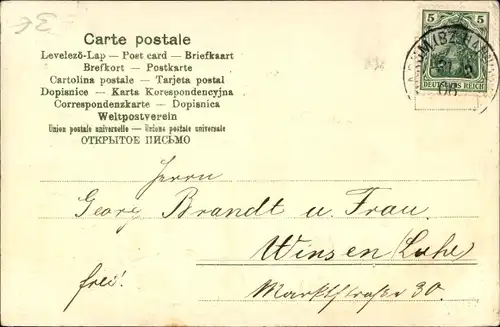 Carte postale
Levelező-Lap — Post card — Briefkaart
Brefkort — Postkarte
Cartolina postale — Tarjeta postal
Dopisnice — Karta Korespondencyjna
Correspondenzkarte — Dopisnica
Weltpostverein
Union postale universelle — Unione postale universale
ОТКРЫТОЕ ПИСЬМО
5 5
DEUTSCHES REICH
Herrn
Georg Brandt u. Frau
Winsen (Luhe)
frei!
Marktstraße 30.